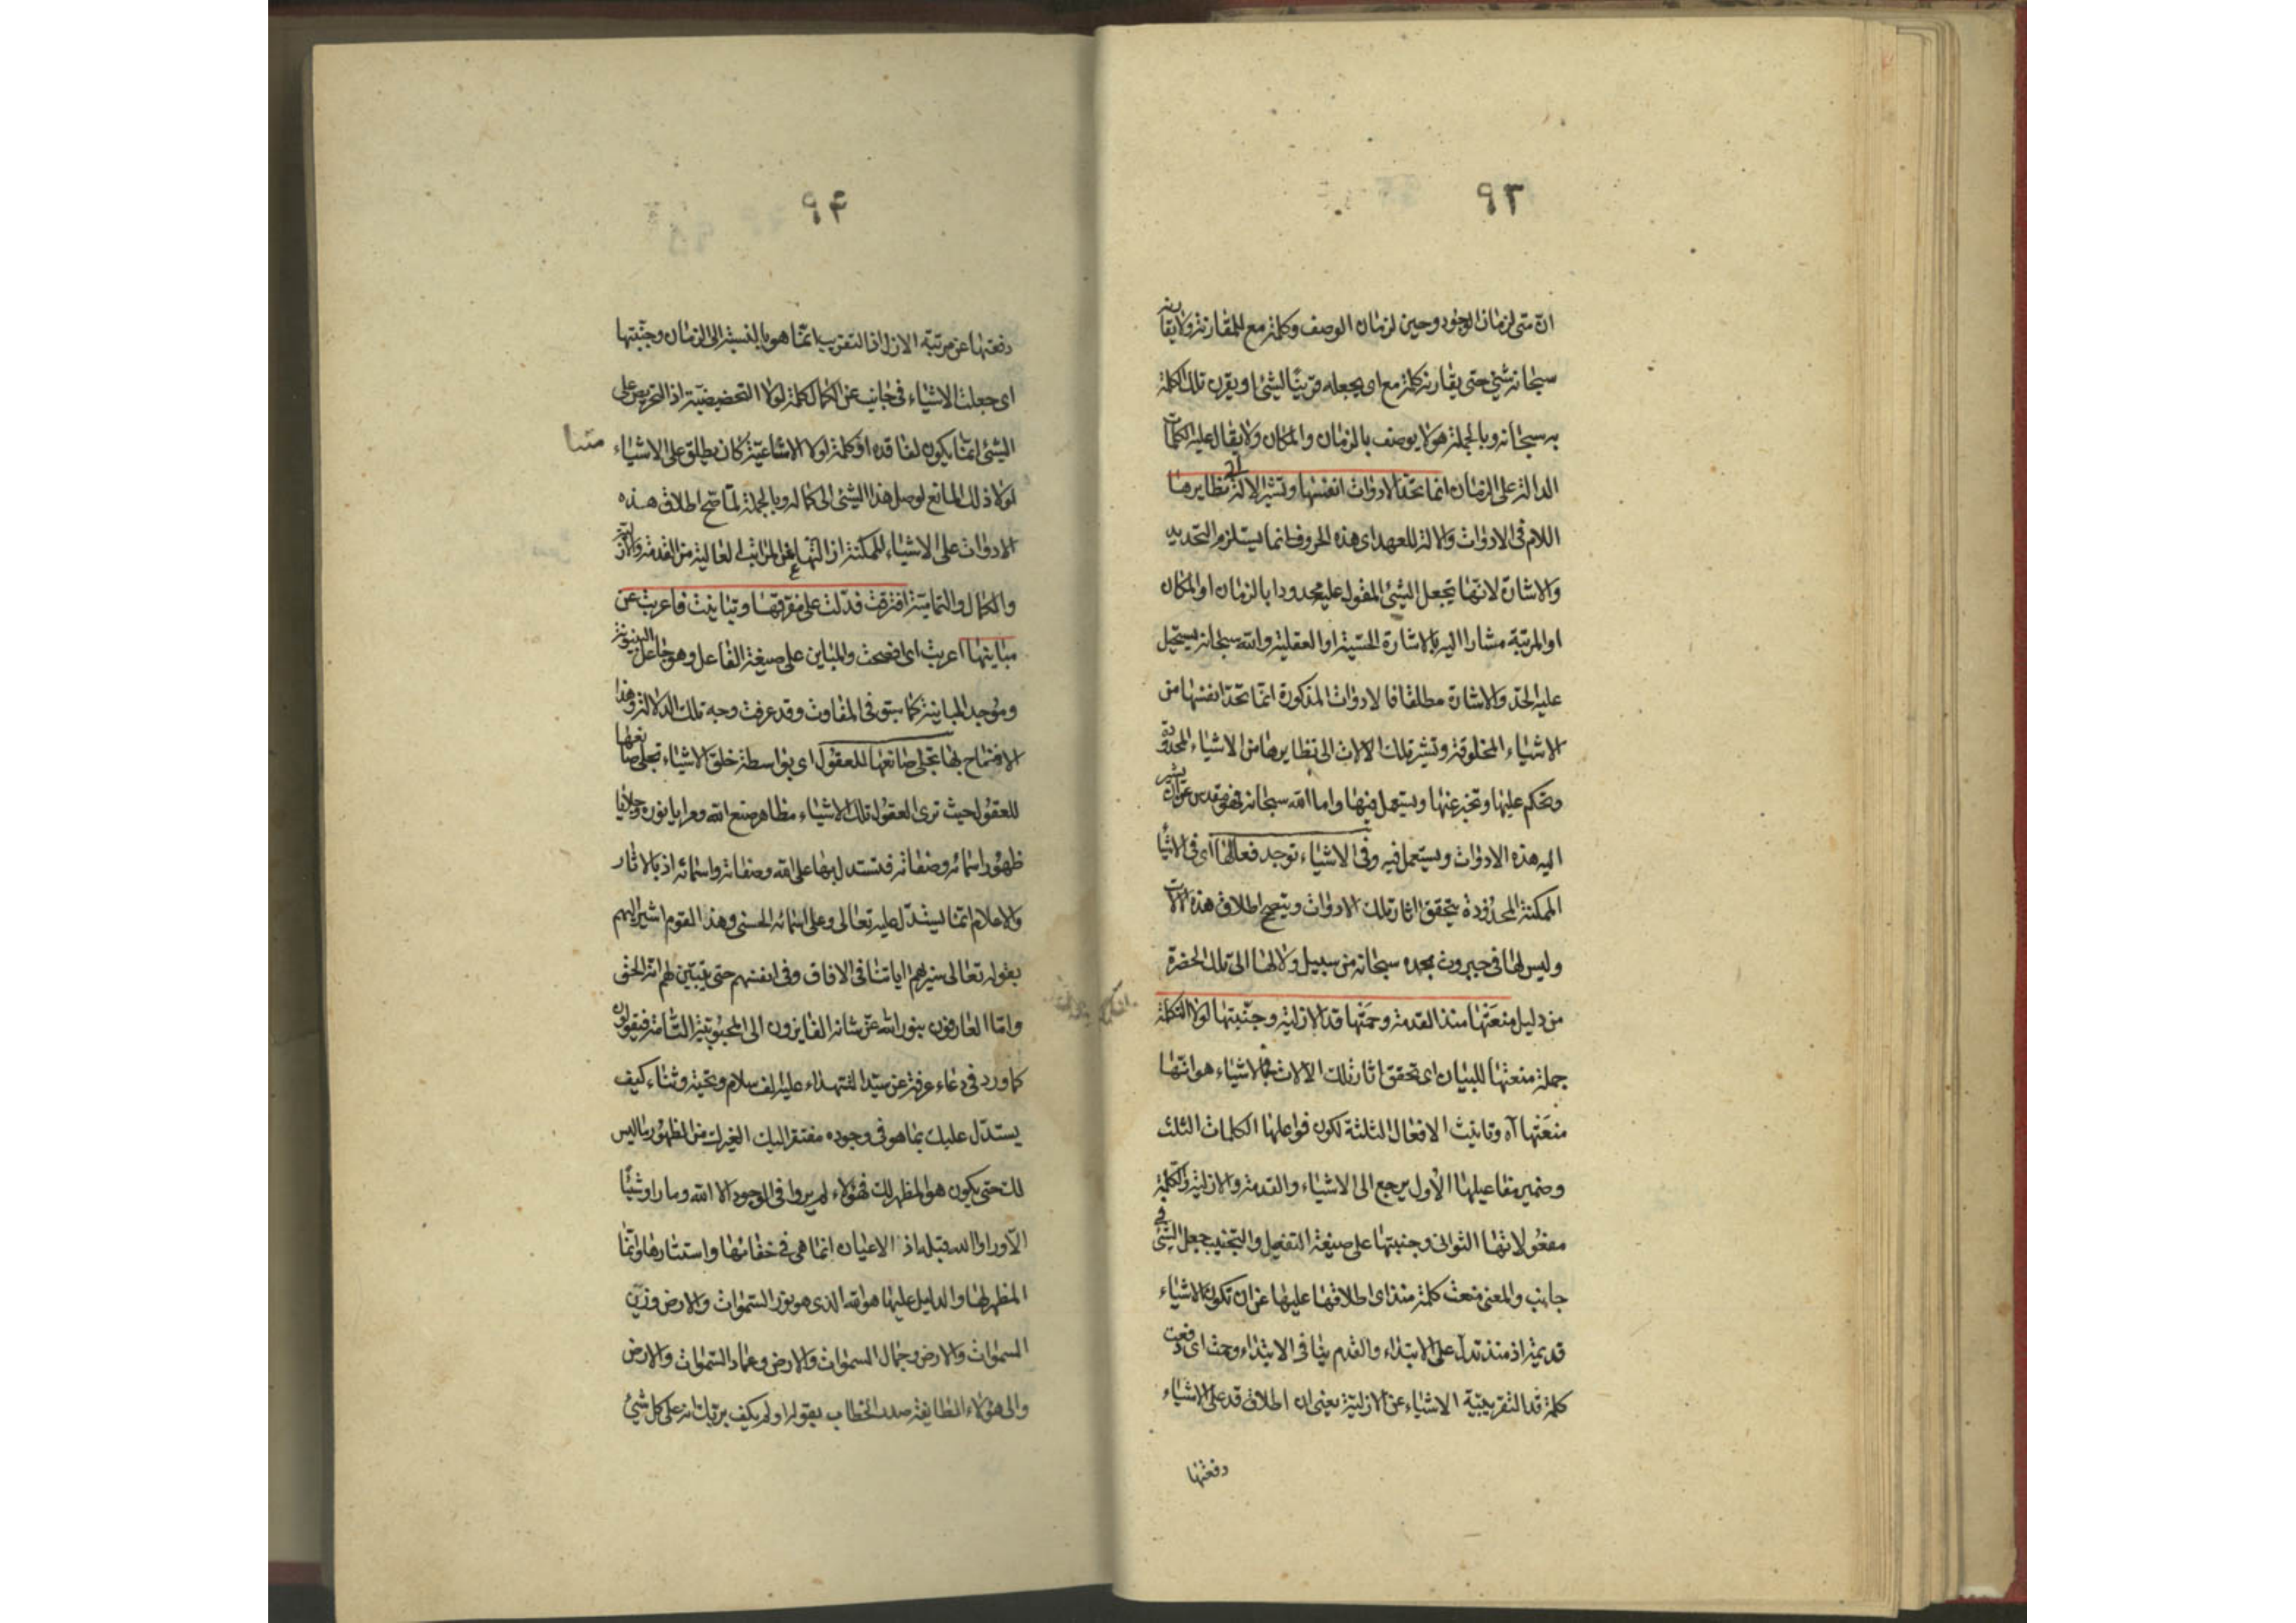 ٩٣
ان متى لزمان الوجود وحين لزمان الوصف وكلمة مع للمقارنة ولا يقارنه
سبحانه شئ حتى يقارنه كلمة مع اى يجعله قرينا لشئ او يقرن تلك الكلمة
به سبحانه وبالجملة هو لا يوصف بالزمان والمكان ولا يقال عليه الكلمات
الدالة على الزمان انما تحد الادوات انفسها وتشير الالة الى نظايرها
اللام فى الادوات والالة للعهد اى هذه الحروف انما يستلزم التحديد
والاشارة لانها تجعل الشئ المقول عليه محدودا بالزمان او المكان
او المرتبة مشارا اليه بالاشارة الحسية او العقلية والله سبحانه يستحيل
عليه الحد والاشارة مطلقا فالادوات المذكورة انما تحد انفسها من
الاشياء المخلوقة وتشير تلك الالات الى نظايرها من الاشياء المحدودة
وتحكم عليها وتخبر عنها ويستعمل فيها واما الله سبحانه فهو مقدس عن ان يشير
اليه هذه الادوات ويستعمل فيه وفى الاشياء توجد فعالها اى فى الاشياء
الممكنة المحدودة يتحقق اثار تلك الادوات ويصح اطلاق هذه الالات
وليس لها فى جبروت مجده سبحانه من سبيل ولا لها الى تلك الحضرة
من دليل منعتها منذ القدمة وحمتها قد الازلية وجنبتها لولا التكملة
جملة منعتها للبيان اى تحقق اثار تلك الالات فى الاشياء هو انها
منعتها آه وتانيث الافعال الثلثة لكون فواعلها الكلمات الثلث
وضمير مفاعيلها الاول يرجع الى الاشياء والقدمة والازلية والتكملة
مفعولاتها الثوانى وجنبتها على صيغة التفعيل والتجنيب جعل الشئ فى
جانب والمعنى منعت كلمة منذ اى اطلاقها عليها عن ان تكون الاشياء
قديمة اذ منذ تدل على الابتداء والقدم ينافى الابتداء وحمت اى دفعت
كلمة قد التقريبية الاشياء عن الازلية يعنى ان اطلاق قد على الاشياء
دفعتها
٩۴
دفعتها عن مرتبة الازل اذ التقريب انما هو بالنسبة الى الزمان وجنبتها
اى جعلت الاشياء فى جانب عن الكمال كلمة لولا التحضيضية اذ التحريص على
الشئ انما يكون لفاقده او كلمة لولا الامتناعية كان يطلق على الاشياء
لولا ذلك المانع لوصل هذا الشئ الى كماله وبالجملة لما صح اطلاق هذه
الادوات على الاشياء الممكنة ازالتها عن المراتب العالية من القدمة والازلية
والكمال والتمامية افترقت فدلت على مفرقها وتباينت فاعربت عن
مباينها اعربت اى افصحت والمباين على صيغة الفاعل وهو جاعل البينونة
وموجد المباينة كما سبق فى المفاوت وقد عرفت وجه تلك الدلالة وهذا
الافصاح بها تجلى صانعها للعقول اى بواسطة خلق الاشياء تجلى صانعها
للعقول حيث ترى العقول تلك الاشياء مظاهر صنع الله ومرايا نوره وجلايا
ظهور اسمائه وصفاته فتستدل بها على الله وصفاته واسمائه اذ بالاثار
والاعلام انما يستدل عليه تعالى وعلى اسمائه الحسنى وهذا القوم اشير اليهم
بقوله تعالى سنريهم اياتنا فى الافاق وفى انفسهم حتى يتبين لهم انه الحق
واما العارفون بنور الله عز شانه الفايزون الى المحبوبية التامة فيقولون
كما ورد فى دعاء عرفة عن سيد الشهداء عليه الف سلام وتحية وثناء كيف
يستدل عليك بما هو فى وجوده مفتقر اليك الغيرك من الظهور ما ليس
لك حتى يكون هو المظهر لك فهؤلاء لم يروا فى الوجود الا الله وما راوا شيئا
الا وراوا الله قبله اذ الاعيان انما هى فى خفائها واستتارها وانما
المظهر لها والدليل عليها هو الله الذى هو نور السموات والارض وزين
السموات والارض وجمال السموات والارض وعماد السموات والارض
والى هؤلاء الطايفة صدر الخطاب بقوله او لم يكف بربك انه على كل شئ